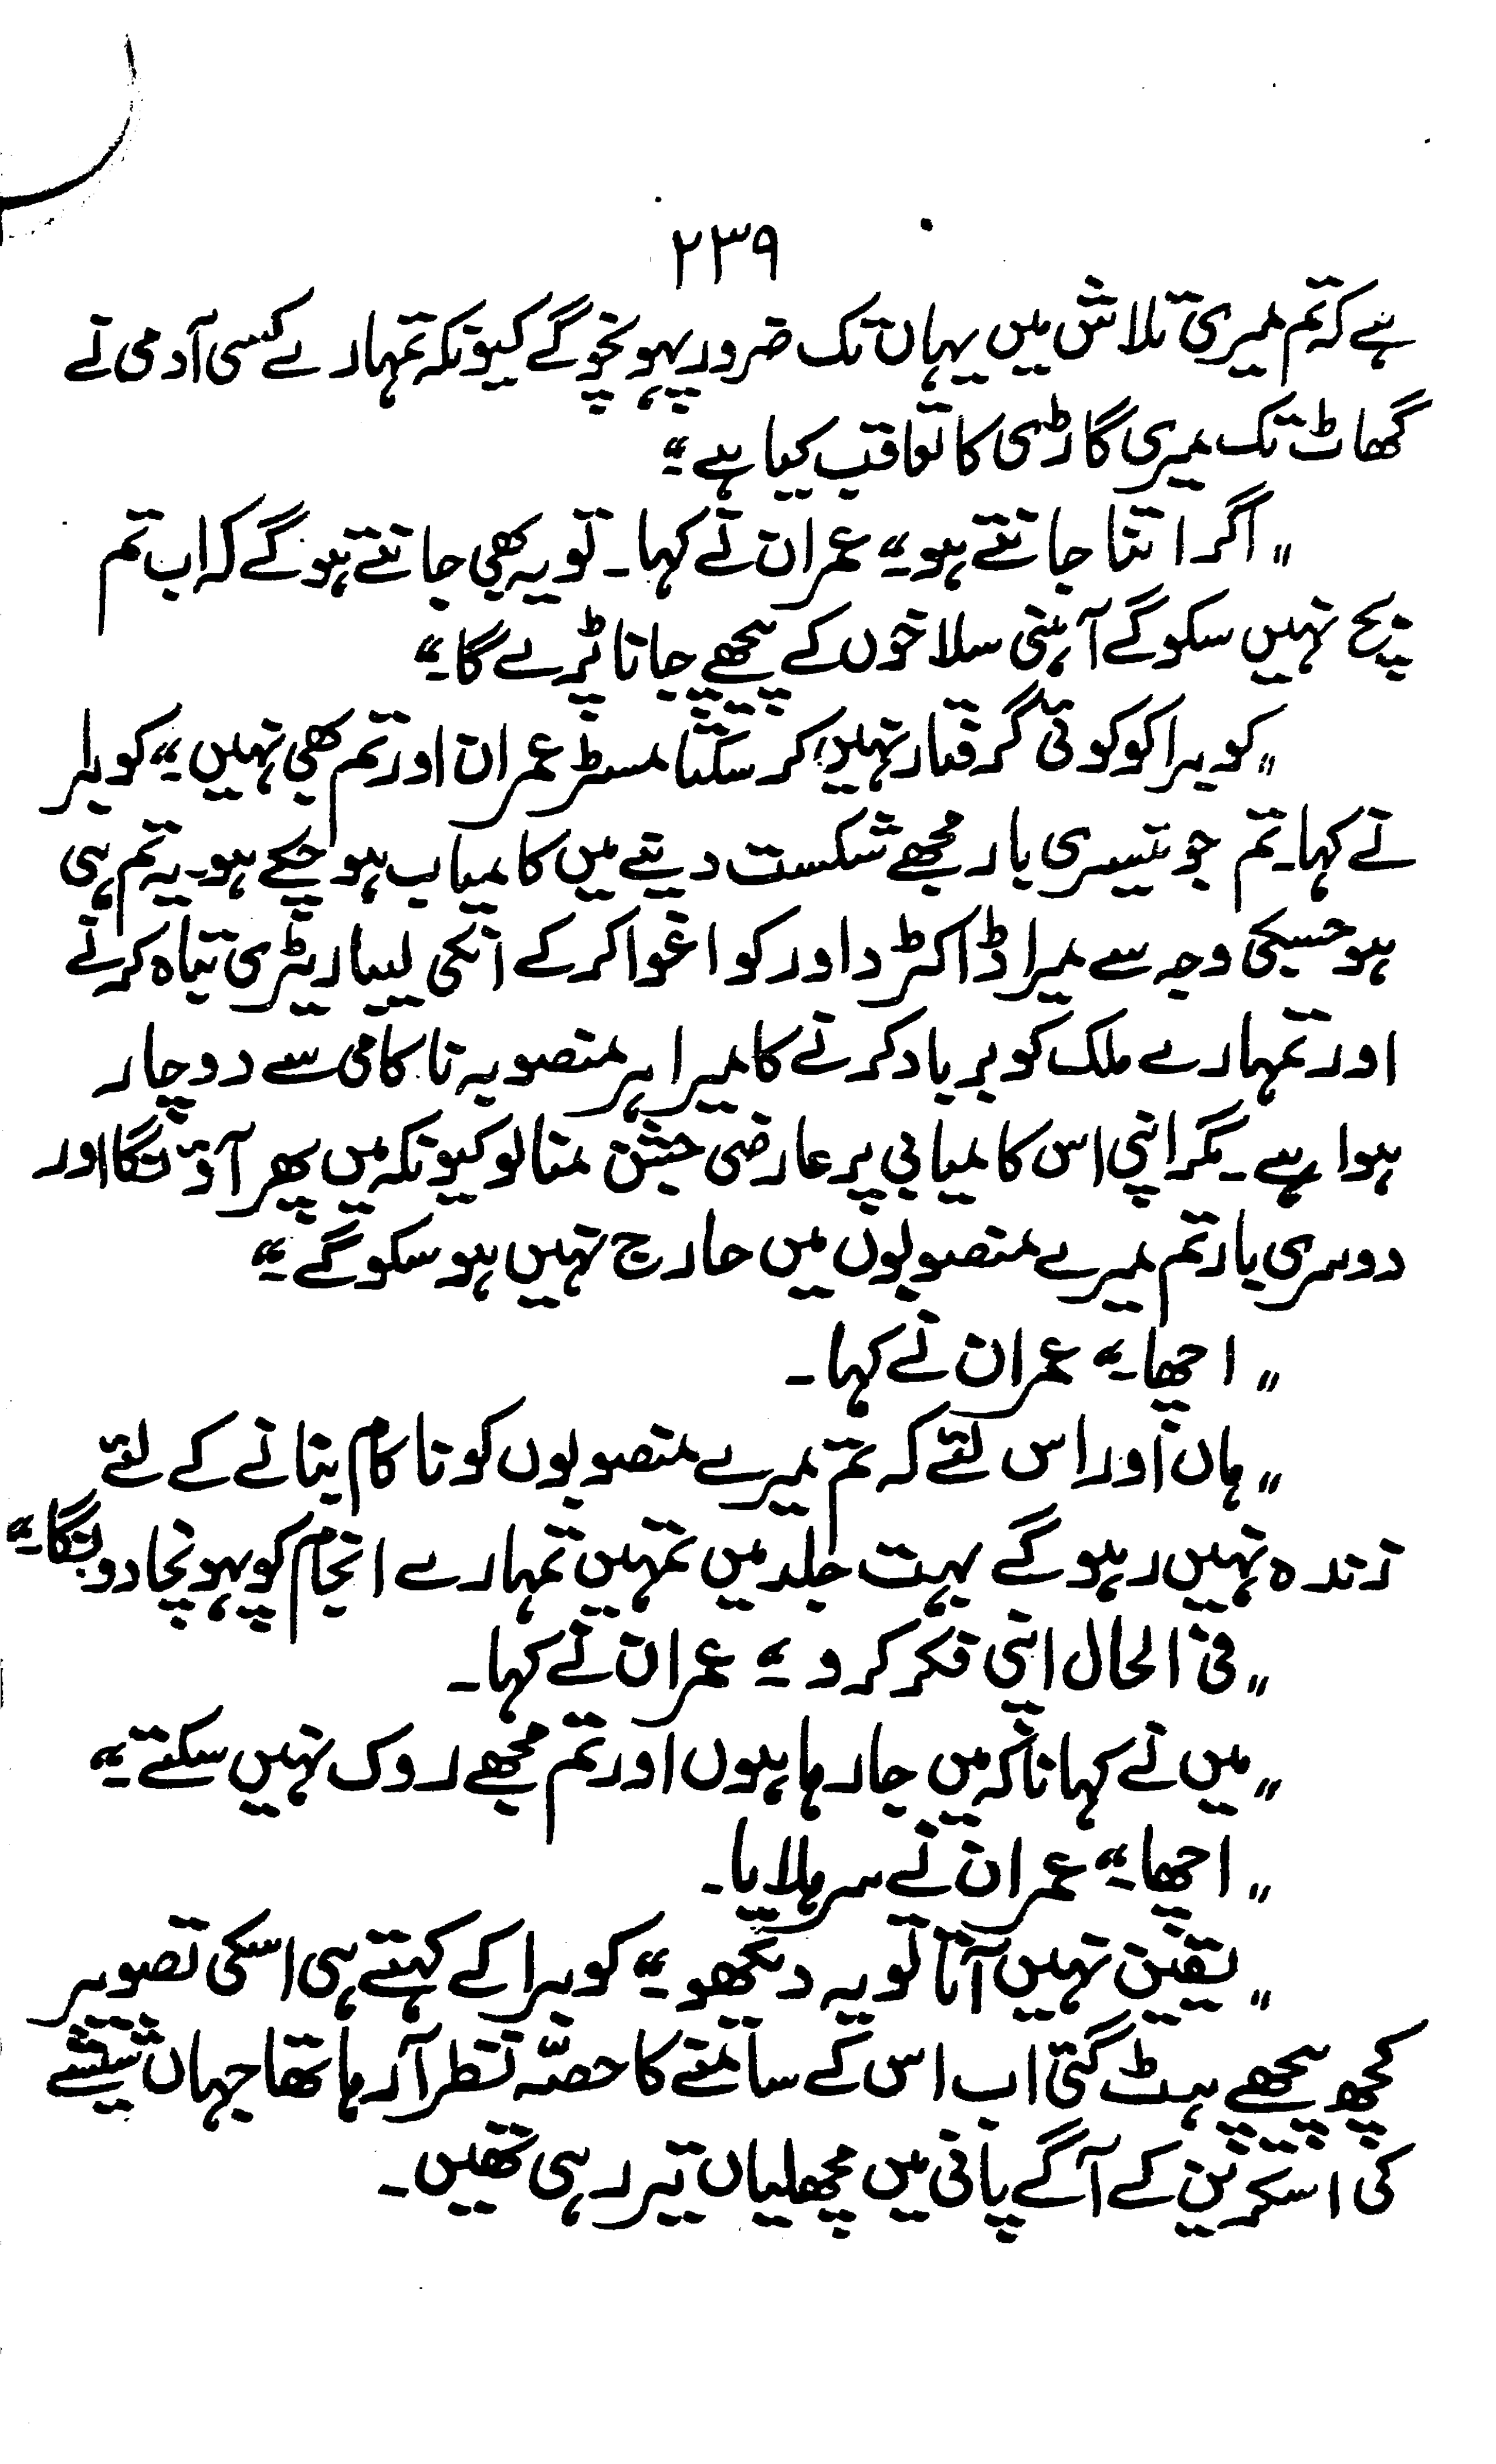 ۲۳۹
ہے کہ تم میری تلاش میں یہاں تک ضرور پہونچو گے کیونکہ تمہارے کسی آدمی نے
گھاٹ تک میری گاڑی کا تعاقب کیا ہے۔"
"اگر اتنا جانتے ہو۔" عمران نے کہا۔ تو یہ بھی جانتے ہو گے کہ اب تم
بچ نہیں سکو گے آہنی سلاخوں کے پیچھے جانا پڑے گا۔"
"کوبرا کو کوئی گرفتار نہیں کر سکتا مسٹر عمران اور تم بھی نہیں۔" کوبرا
نے کہا۔ تم جو تیسری بار مجھے شکست دینے میں کامیاب ہو چکے ہو۔ یہ تم ہی
ہو جسکی وجہ سے میرا ڈاکٹر داور کو اغوا کر کے انکی لیباریٹری تباہ کرنے
اور تمہارے ملک کو برباد کرنے کا میرا ہر منصوبہ ناکامی سے دوچار
ہوا ہے۔ مگر اپنی اس کامیابی پر عارضی جشن منا لو کیونکہ میں پھر آؤنگا اور
دوسری بار تم میرے منصوبوں میں حارج نہیں ہو سکو گے۔"
"اچھا۔" عمران نے کہا۔
"ہاں اور اس لئے کہ تم میرے منصوبوں کو ناکام بنانے کے لئے
زندہ نہیں رہو گے بہت جلد میں تمہیں تمہارے انجام کو پہونچا دونگا۔"
"فی الحال اپنی فکر کرو۔" عمران نے کہا۔
"میں نے کہا نا کہ میں جا رہا ہوں اور تم مجھے روک نہیں سکتے۔"
"اچھا۔" عمران نے سر ہلایا۔
"یقین نہیں آتا تو یہ دیکھو۔" کوبرا کے کہتے ہی اسکی تصویر
کچھ پیچھے ہٹ گئی اب اس کے سامنے کا حصّہ نظر آ رہا تھا جہاں شیشے
کی اسکرین کے آگے پانی میں مچھلیاں تیر رہی تھیں۔